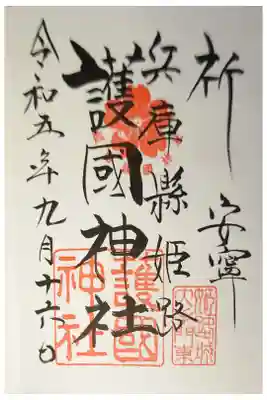 祈 安寧
兵庫縣姫路
護國神社
令和五年九月十六日
護國
神社